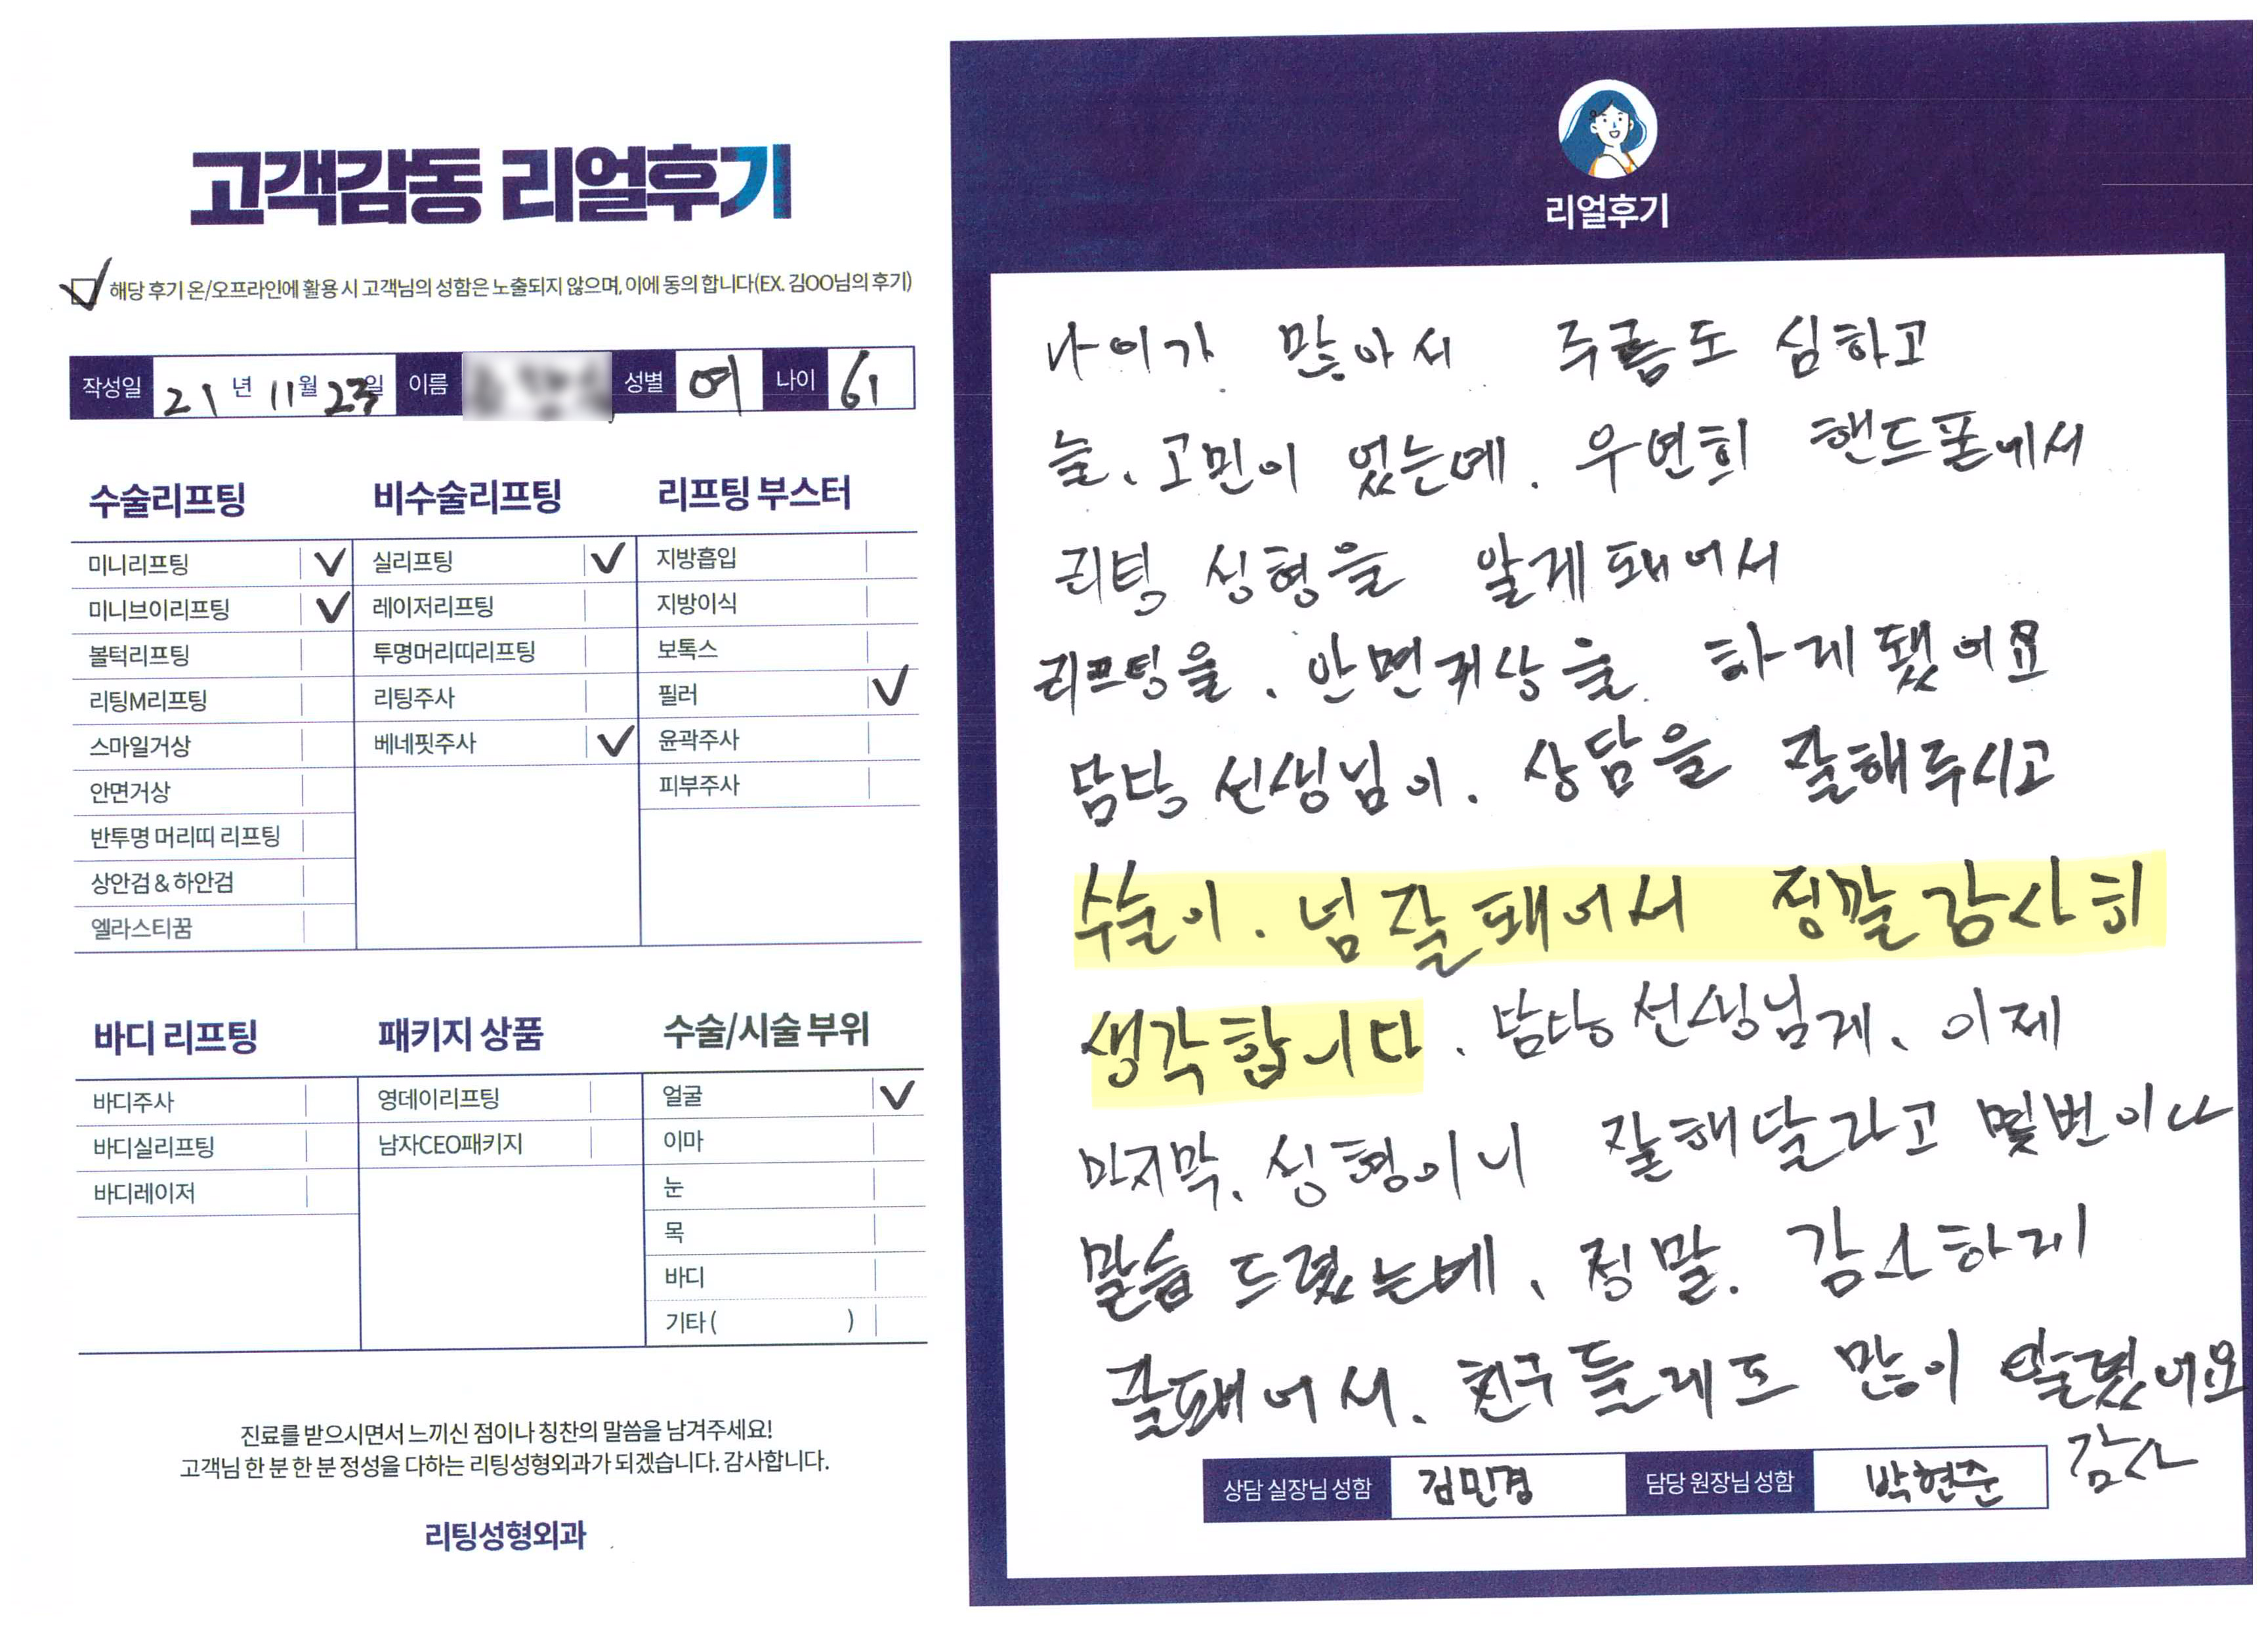 고객감동 리얼후기
해당 후기 온/오프라인에 활용 시 고객님의 성함은 노출되지 않으며, 이에 동의 합니다(EX. 김OO님의 후기)
작성일 21년 11월 23일 이름 성별 여 나이 61
수술리프팅
미니리프팅
미니브이리프팅
볼턱리프팅
리팅M리프팅
스마일거상
안면거상
반투명 머리띠 리프팅
상안검 & 하안검
엘라스티꿈
비수술리프팅
실리프팅
레이저리프팅
투명머리띠리프팅
리팅주사
베네핏주사
리프팅 부스터
지방흡입
지방이식
보톡스
필러
윤곽주사
피부주사
바디 리프팅
바디주사
바디실리프팅
바디레이저
패키지 상품
영데이리프팅
남자CEO패키지
수술/시술 부위
얼굴
이마
눈
목
바디
기타 ( )
진료를 받으시면서 느끼신 점이나 칭찬의 말씀을 남겨주세요!
고객님 한 분 한 분 정성을 다하는 리팅성형외과가 되겠습니다. 감사합니다.
리팅성형외과
리얼후기
나이가 많아서 주름도 심하고
늘. 고민이 었는데. 우연희 핸드폰에서
리팅 싱형을 알게돼어서
리프팅을. 안면귀상을 하게됐어요
담당 선생님이. 상담을 잘해주시고
수술이. 넘잘돼어서 정말감사히
생각합니다. 담당선생님게. 이제
마지막. 싱형이니 잘해달라고 몇번이나
말슴 드렸는데. 정말. 감사하게
잘돼어서. 친구들게도 많이 알렸어요
감사
상담 실장님 성함 김민경 담당 원장님 성함 박현준